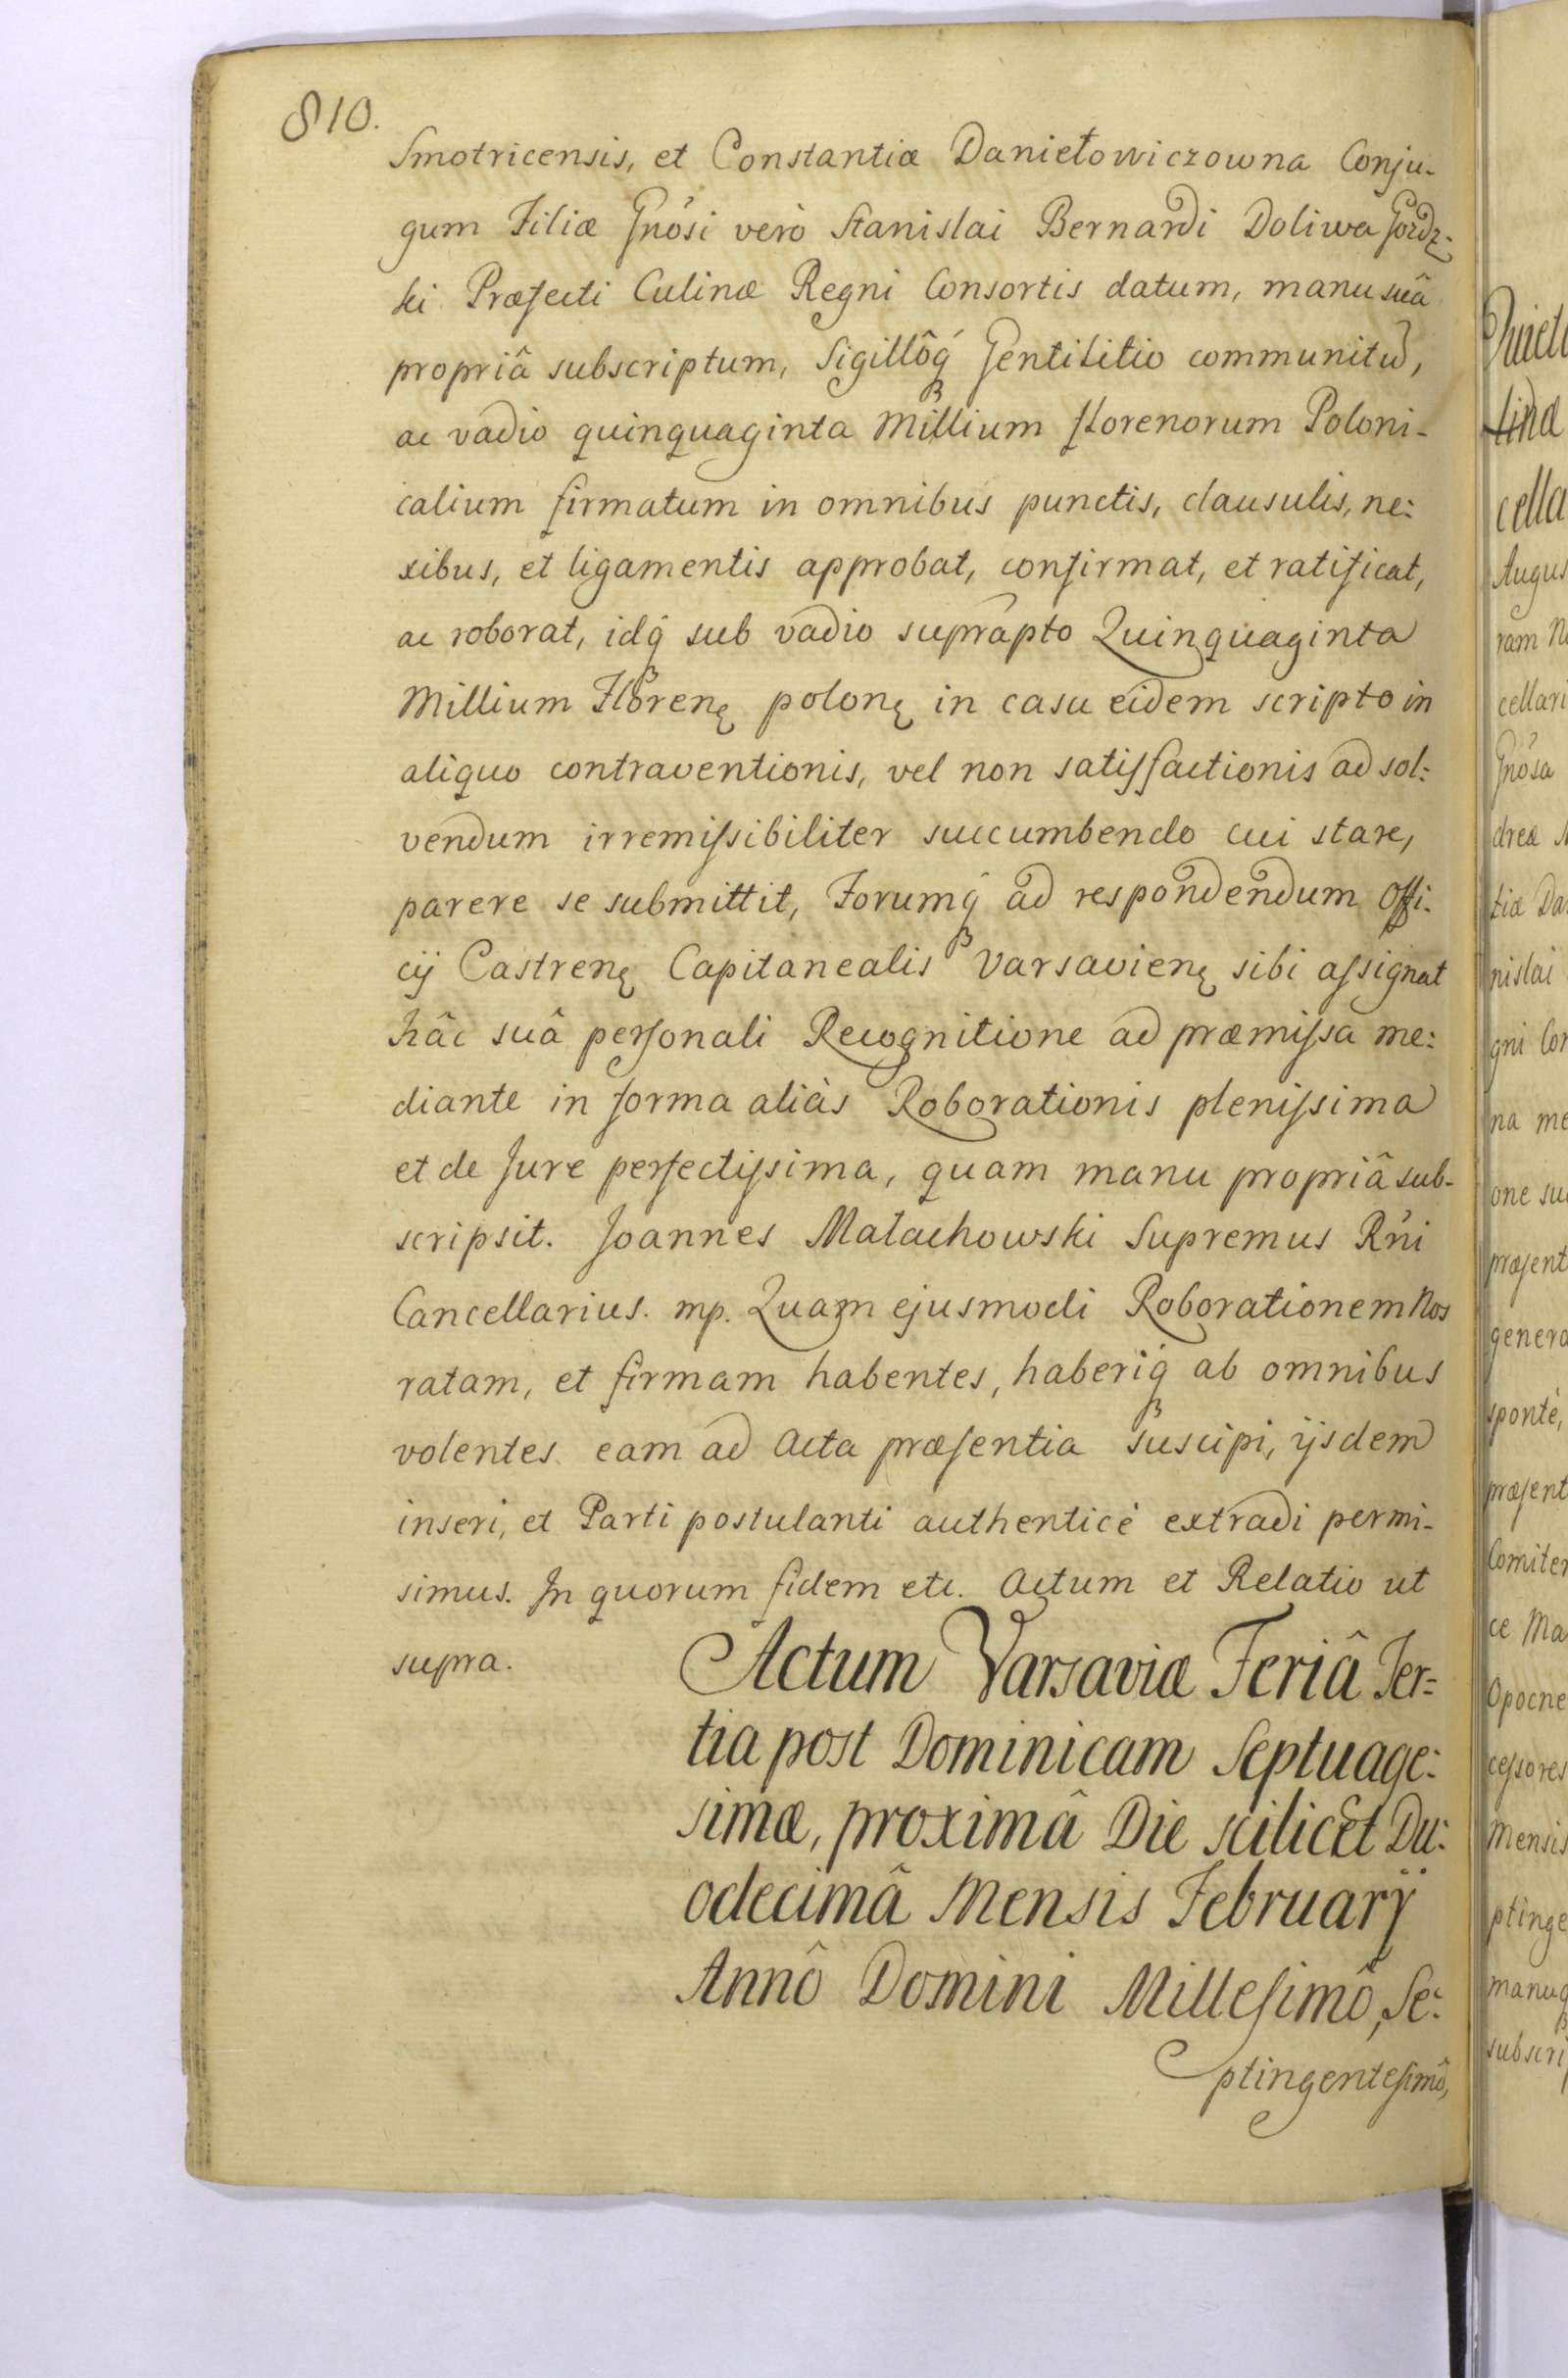 810.
Smotricensis, et Constantiæ Daniełowiczowna Conju-
gum Filiæ Gnosi verò Stanislai Bernardi Doliwa Gordz-
ki Præfecti Culinæ Regni Consortis datum, manu suâ
propriâ subscriptum, Sigillôq́ꝫ Gentilitio communitũ,
ac vadio quinquaginta Millium florenorum Poloni-
calium firmatum in omnibus punctis, clausulis, ne:
xibus, et ligamentis approbat, confirmat, et ratificat,
ac roborat, idq́ꝫ sub vadio suprapto Quinquaginta
Millium Florenę polonę in casu eidem scripto in
aliquo contraventionis, vel non satisfactionis ad sol:
vendum irremissibiliter succumbendo cui stare,
parere se submittit, Forumq́ꝫ ad respondendum Offi:
cij Castrenę Capitanealis Varsavienę sibi assignat
hâc suâ personali Recognitione ad præmissa me:
diante in forma aliàs Roborationis plenissima
et de Jure perfectissima, quam manu propriâ sub-
scripsit. Joannes Małachowski Supremus Rńi
Cancellarius. mp. Quam ejusmodi Roborationem Nos
ratam, et firmam habentes, haberiq́ꝫ ab omnibus
volentes eam ad Acta præsentia suscipi, ijsdem
inseri, et Parti postulanti authenticè extradi permi-
simus. In quorum fidem etc. Actum et Relatio ut
supra.
Actum Varsaviæ Feriâ Ter=
tia post Dominicam Septuage:
simæ, proximâ Die scilicet Du:
odecimâ Mensis Februarij
Annô Domini Millesimô, Se:
ptingentesimô,
Quiet
tinæ
cella
Augus
ram
cellari
Gnosa
dreæ
tiæ Da
nislai
gni Con
na me
one su
præsent
genera
sponté,
præsent
Comiter
ce Ma
Opocne
cessores
Mensis
ptinge
manuq
subscri